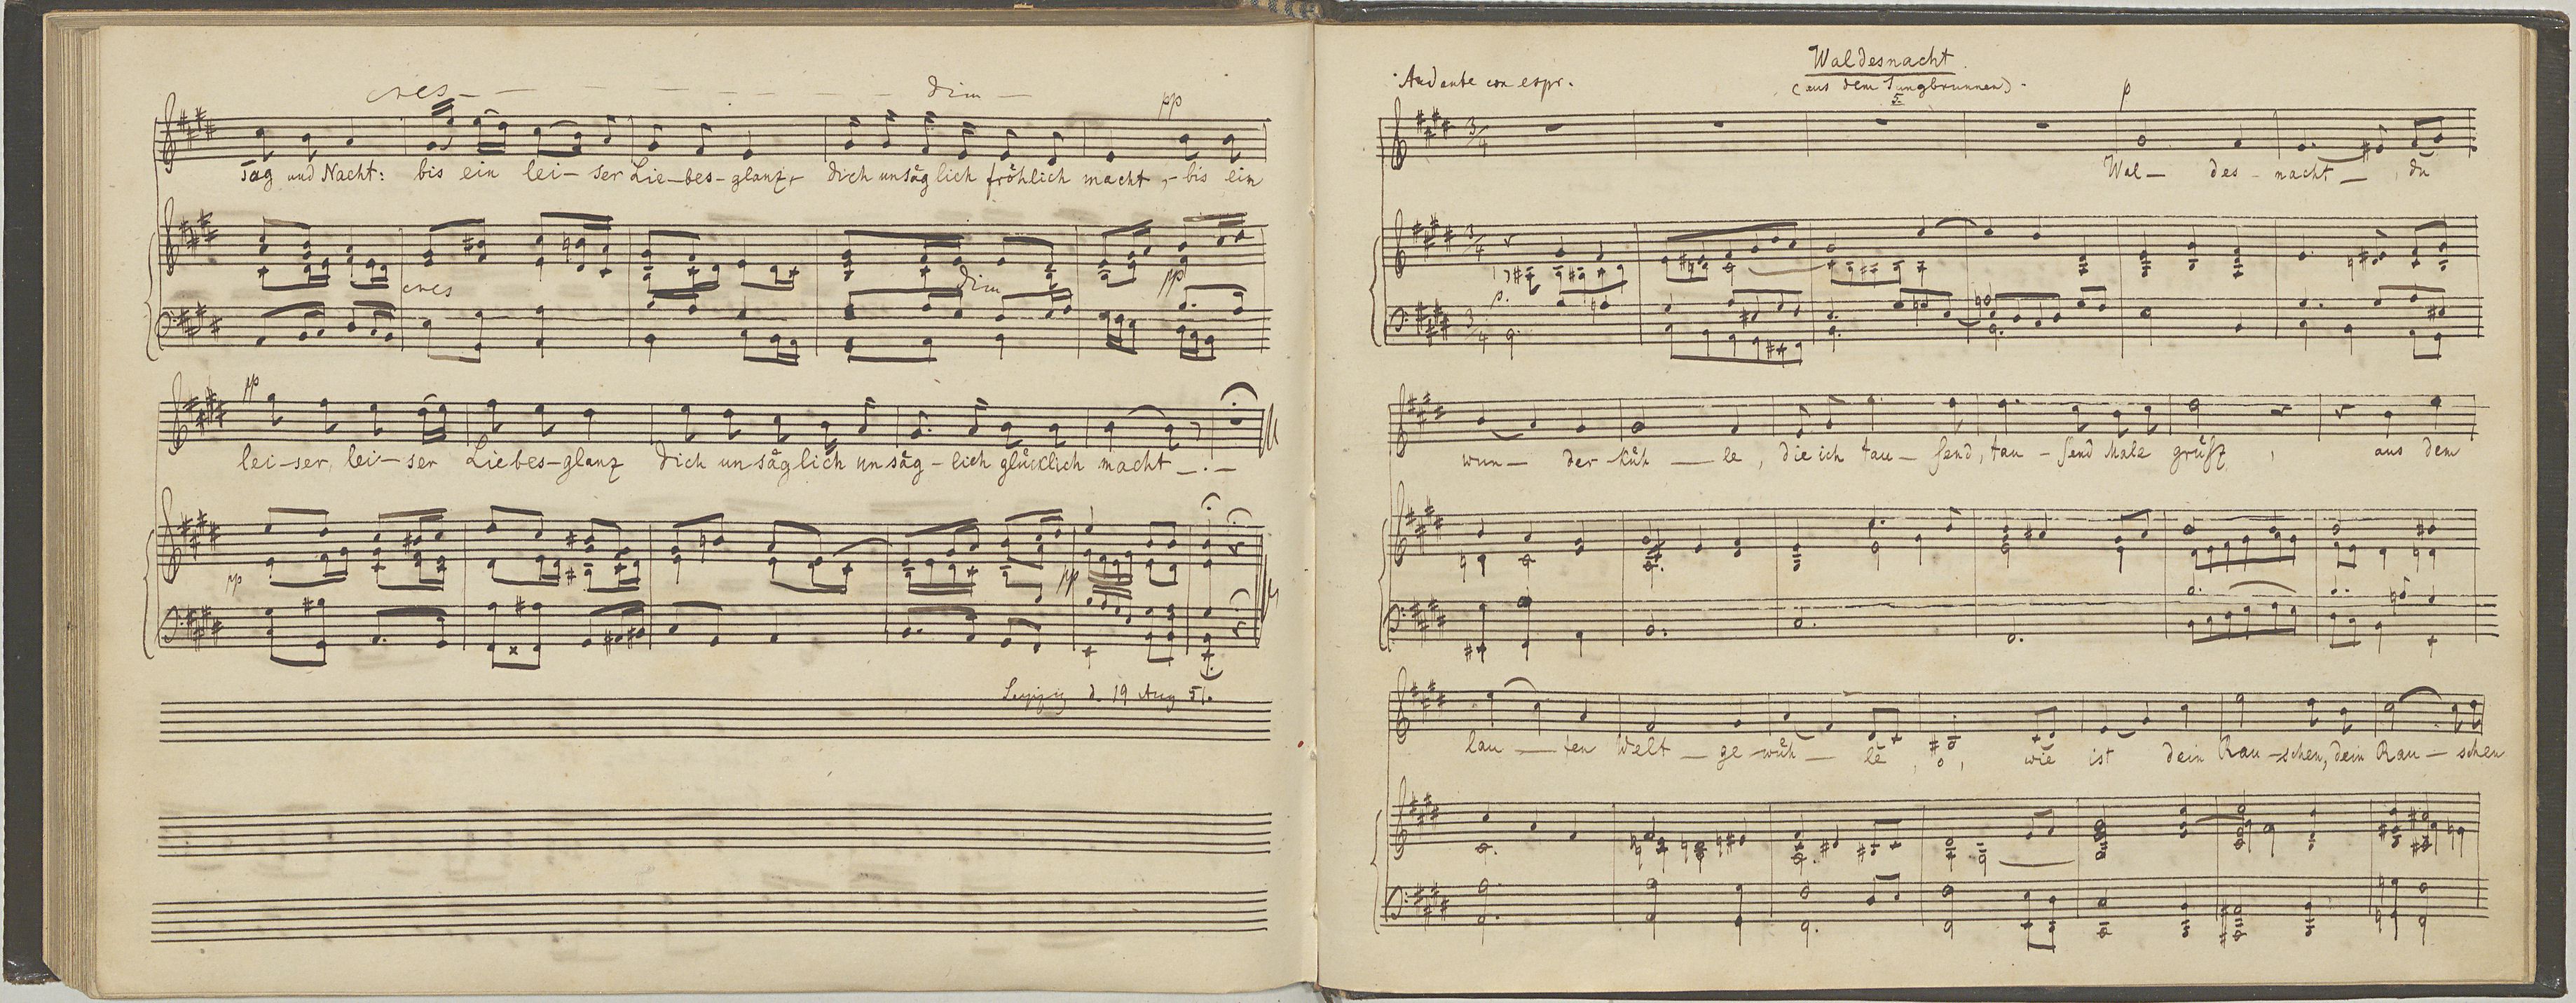 cres - - - - - - - dim -
pp
Tag und Nacht: bis ein lei- ser Lie-bes-glanz, dich unsäglich fröhlich macht,- bis ein
cres dim pp
pp
lei-ser, lei-ser Liebes-glanz dich unsäglich unsäg-lich glücklich macht -.-
pp pp
Leipzig d. 19 Aug 51.
Waldesnacht
Andante con espr.
(aus dem Jungbrunnen).
5.
p
3/4
Wal- des-nacht- , du
3/4
p.
3/4
wun- der küh- le, die ich tau-send, tau-send Male grüß, aus dem
lau- ten Welt-ge-wüh- le, o, wie ist dein Rau-schen, dein Rau-schen